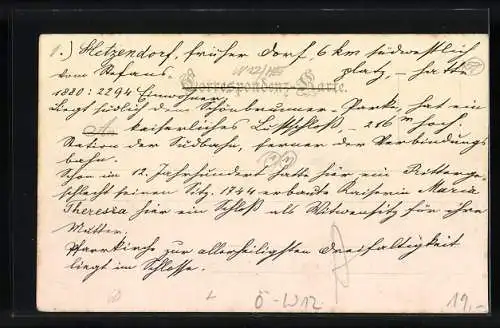 1.) Hetzendorf, früher Dorf, 6 km südwestlich
W12/115
vom Stefansplatz, – hatte
Correspondenz-Karte.
1880: 2294 Einwohner,
liegt südlich dem Schönbrunner-Parke, hat ein
An kaiserliches Lustschloß, – 216 m hoch.
Station der Südbahn, ferner der Verbindungs
bahn.
Schon im 12. Jahrhundert hatte hier ein Ritterge-
schlecht seinen Sitz, 1744 erbaute Kaiserin Maria
Theresia hier ein Schloß als Witwensitz für ihre
Mutter.
Pfarrkirche zur allerheiligsten Dreifaltigkeit
liegt im Schlosse.
Ö-W12
19,-